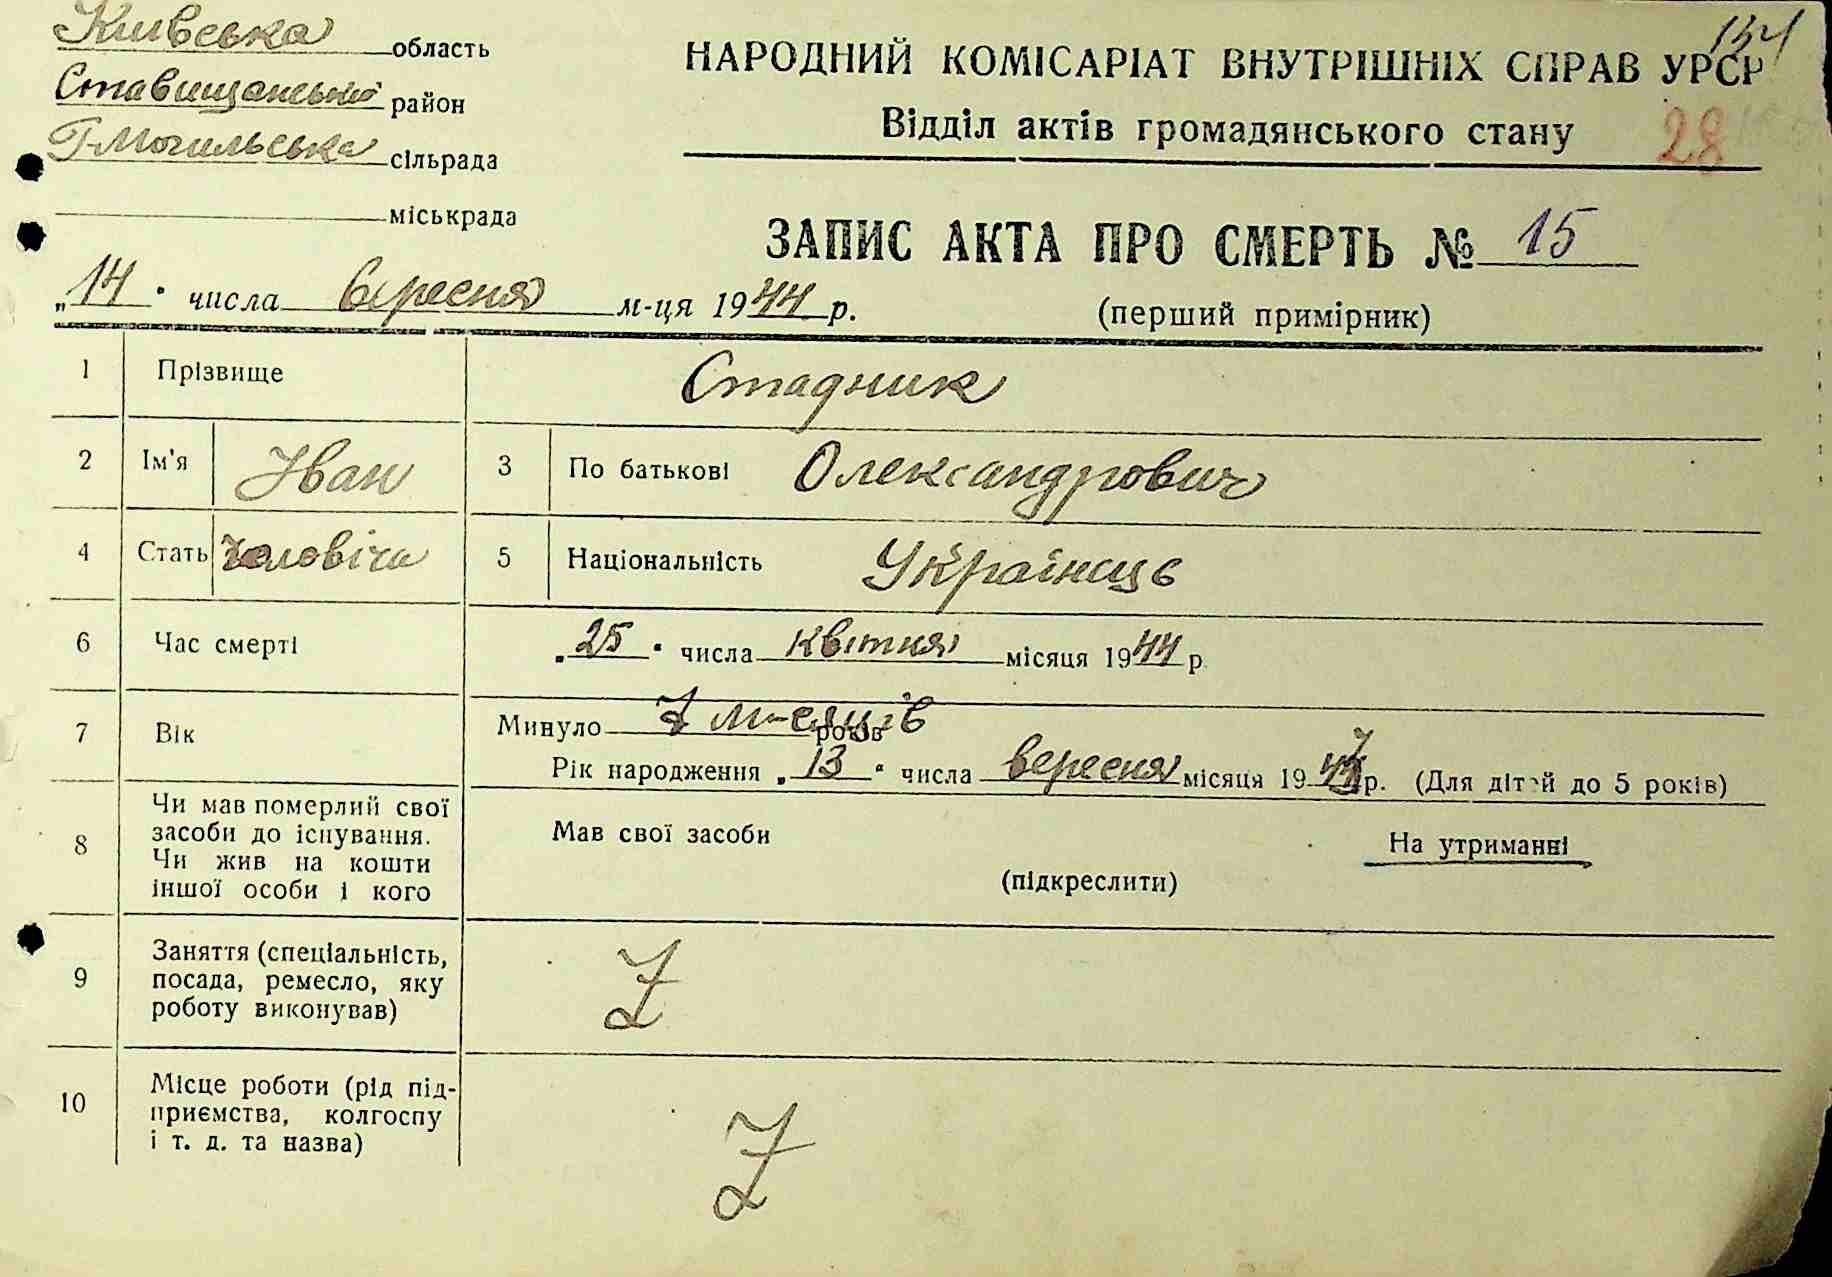 Київська область
Ставищанський район
Г-Могильська сільрада
міськрада
НАРОДНИЙ КОМІСАРІАТ ВНУТРІШНІХ СПРАВ УРСР
Відділ актів громадянського стану
28
ЗАПИС АКТА ПРО СМЕРТЬ № 15
(перший примірник)
„14" числа вересня м-ця 1944 р.
1 Прізвище Стадник
2 Ім'я Іван 3 По батькові Олександрович
4 Стать чоловіча 5 Національність Українець
6 Час смерті „25" числа квітня місяця 1944 р.
7 Вік Минуло 7 м-сяців років
Рік народження „13" числа вересня місяця 1943 р. (Для дітей до 5 років)
8 Чи мав померлий свої засоби до існування. Чи жив на кошти іншої особи і кого
Мав свої засоби На утриманні
(підкреслити)
9 Заняття (спеціальність, посада, ремесло, яку роботу виконував)
10 Місце роботи (рід підприємства, колгоспу і т. д. та назва)